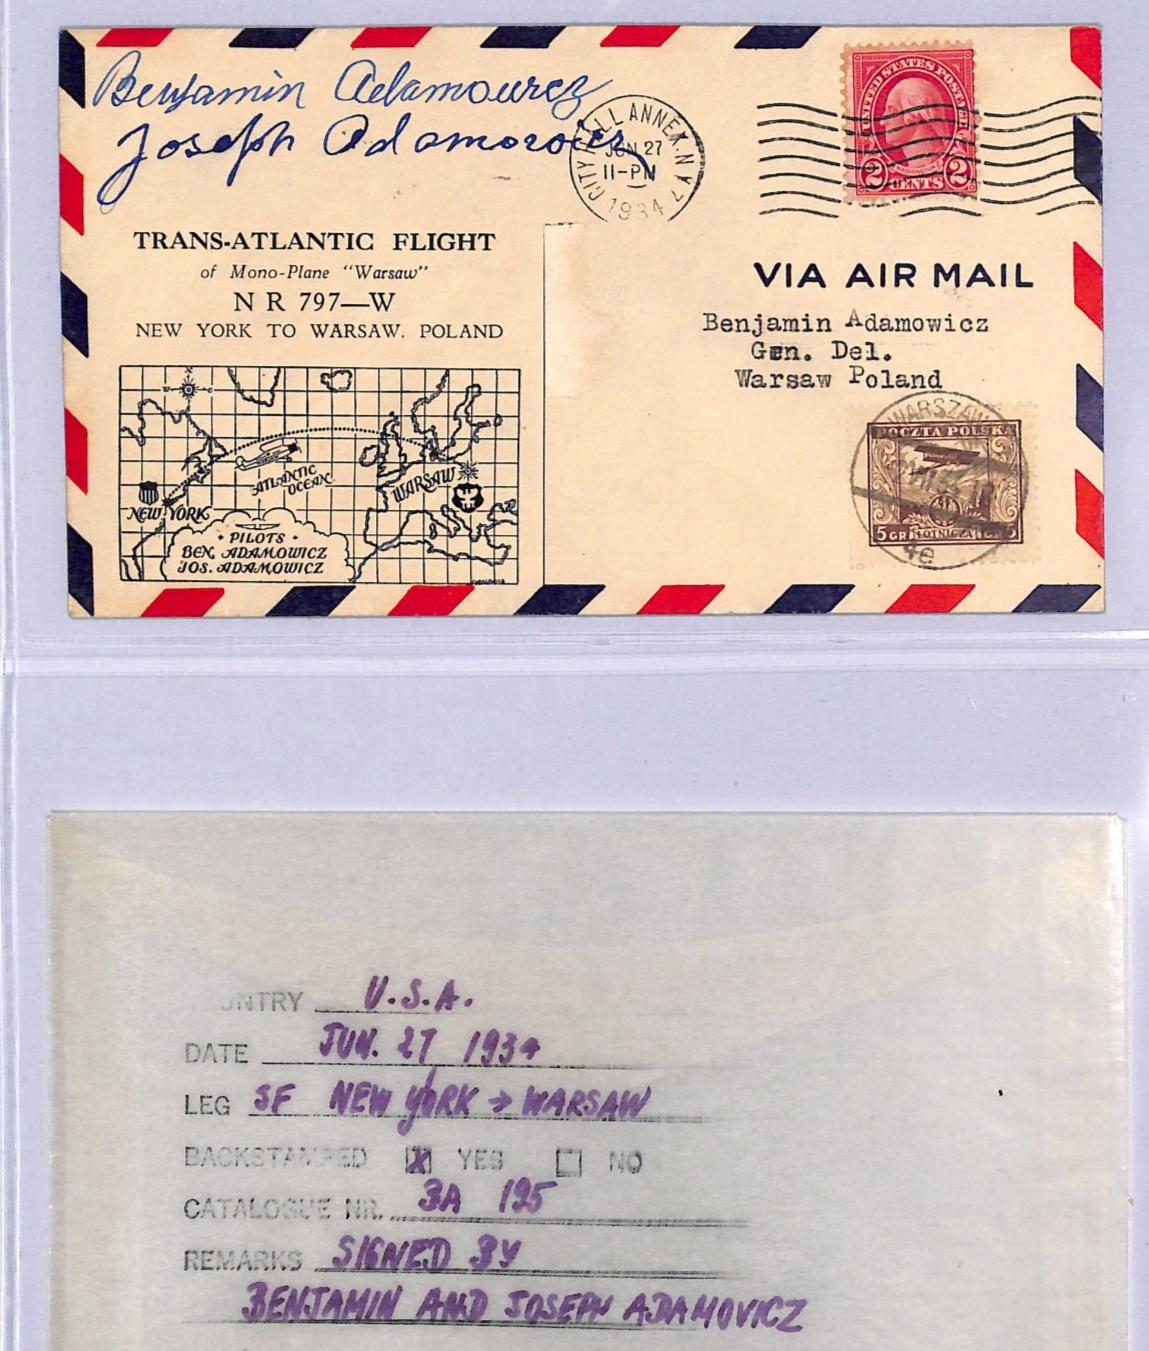 Benjamin Adamowicz
Joseph Adamowicz
CITY HALL ANNEX. N.Y. 7
JUN 27
11-PM
1934
UNITED STATES POSTAGE
2 CENTS 2
TRANS-ATLANTIC FLIGHT
of Mono-Plane "Warsaw"
N R 797—W
NEW YORK TO WARSAW. POLAND
VIA AIR MAIL
Benjamin Adamowicz
Gen. Del.
Warsaw Poland
WARSZAWA
POCZTA POLSKA
5 GR LOTNICZA 5
4e
W
ATLANTIC
OCEAN
WARSAW
NEW YORK
• PILOTS •
BEN. ADAMOWICZ
JOS. ADAMOWICZ
UNTRY U.S.A.
DATE JUN. 27 1934
LEG SF NEW YORK → WARSAW
BACKSTAMPED X YES NO
CATALOGUE NR. 3A 195
REMARKS SIGNED BY
BENJAMIN AND JOSEPH ADAMOVICZ